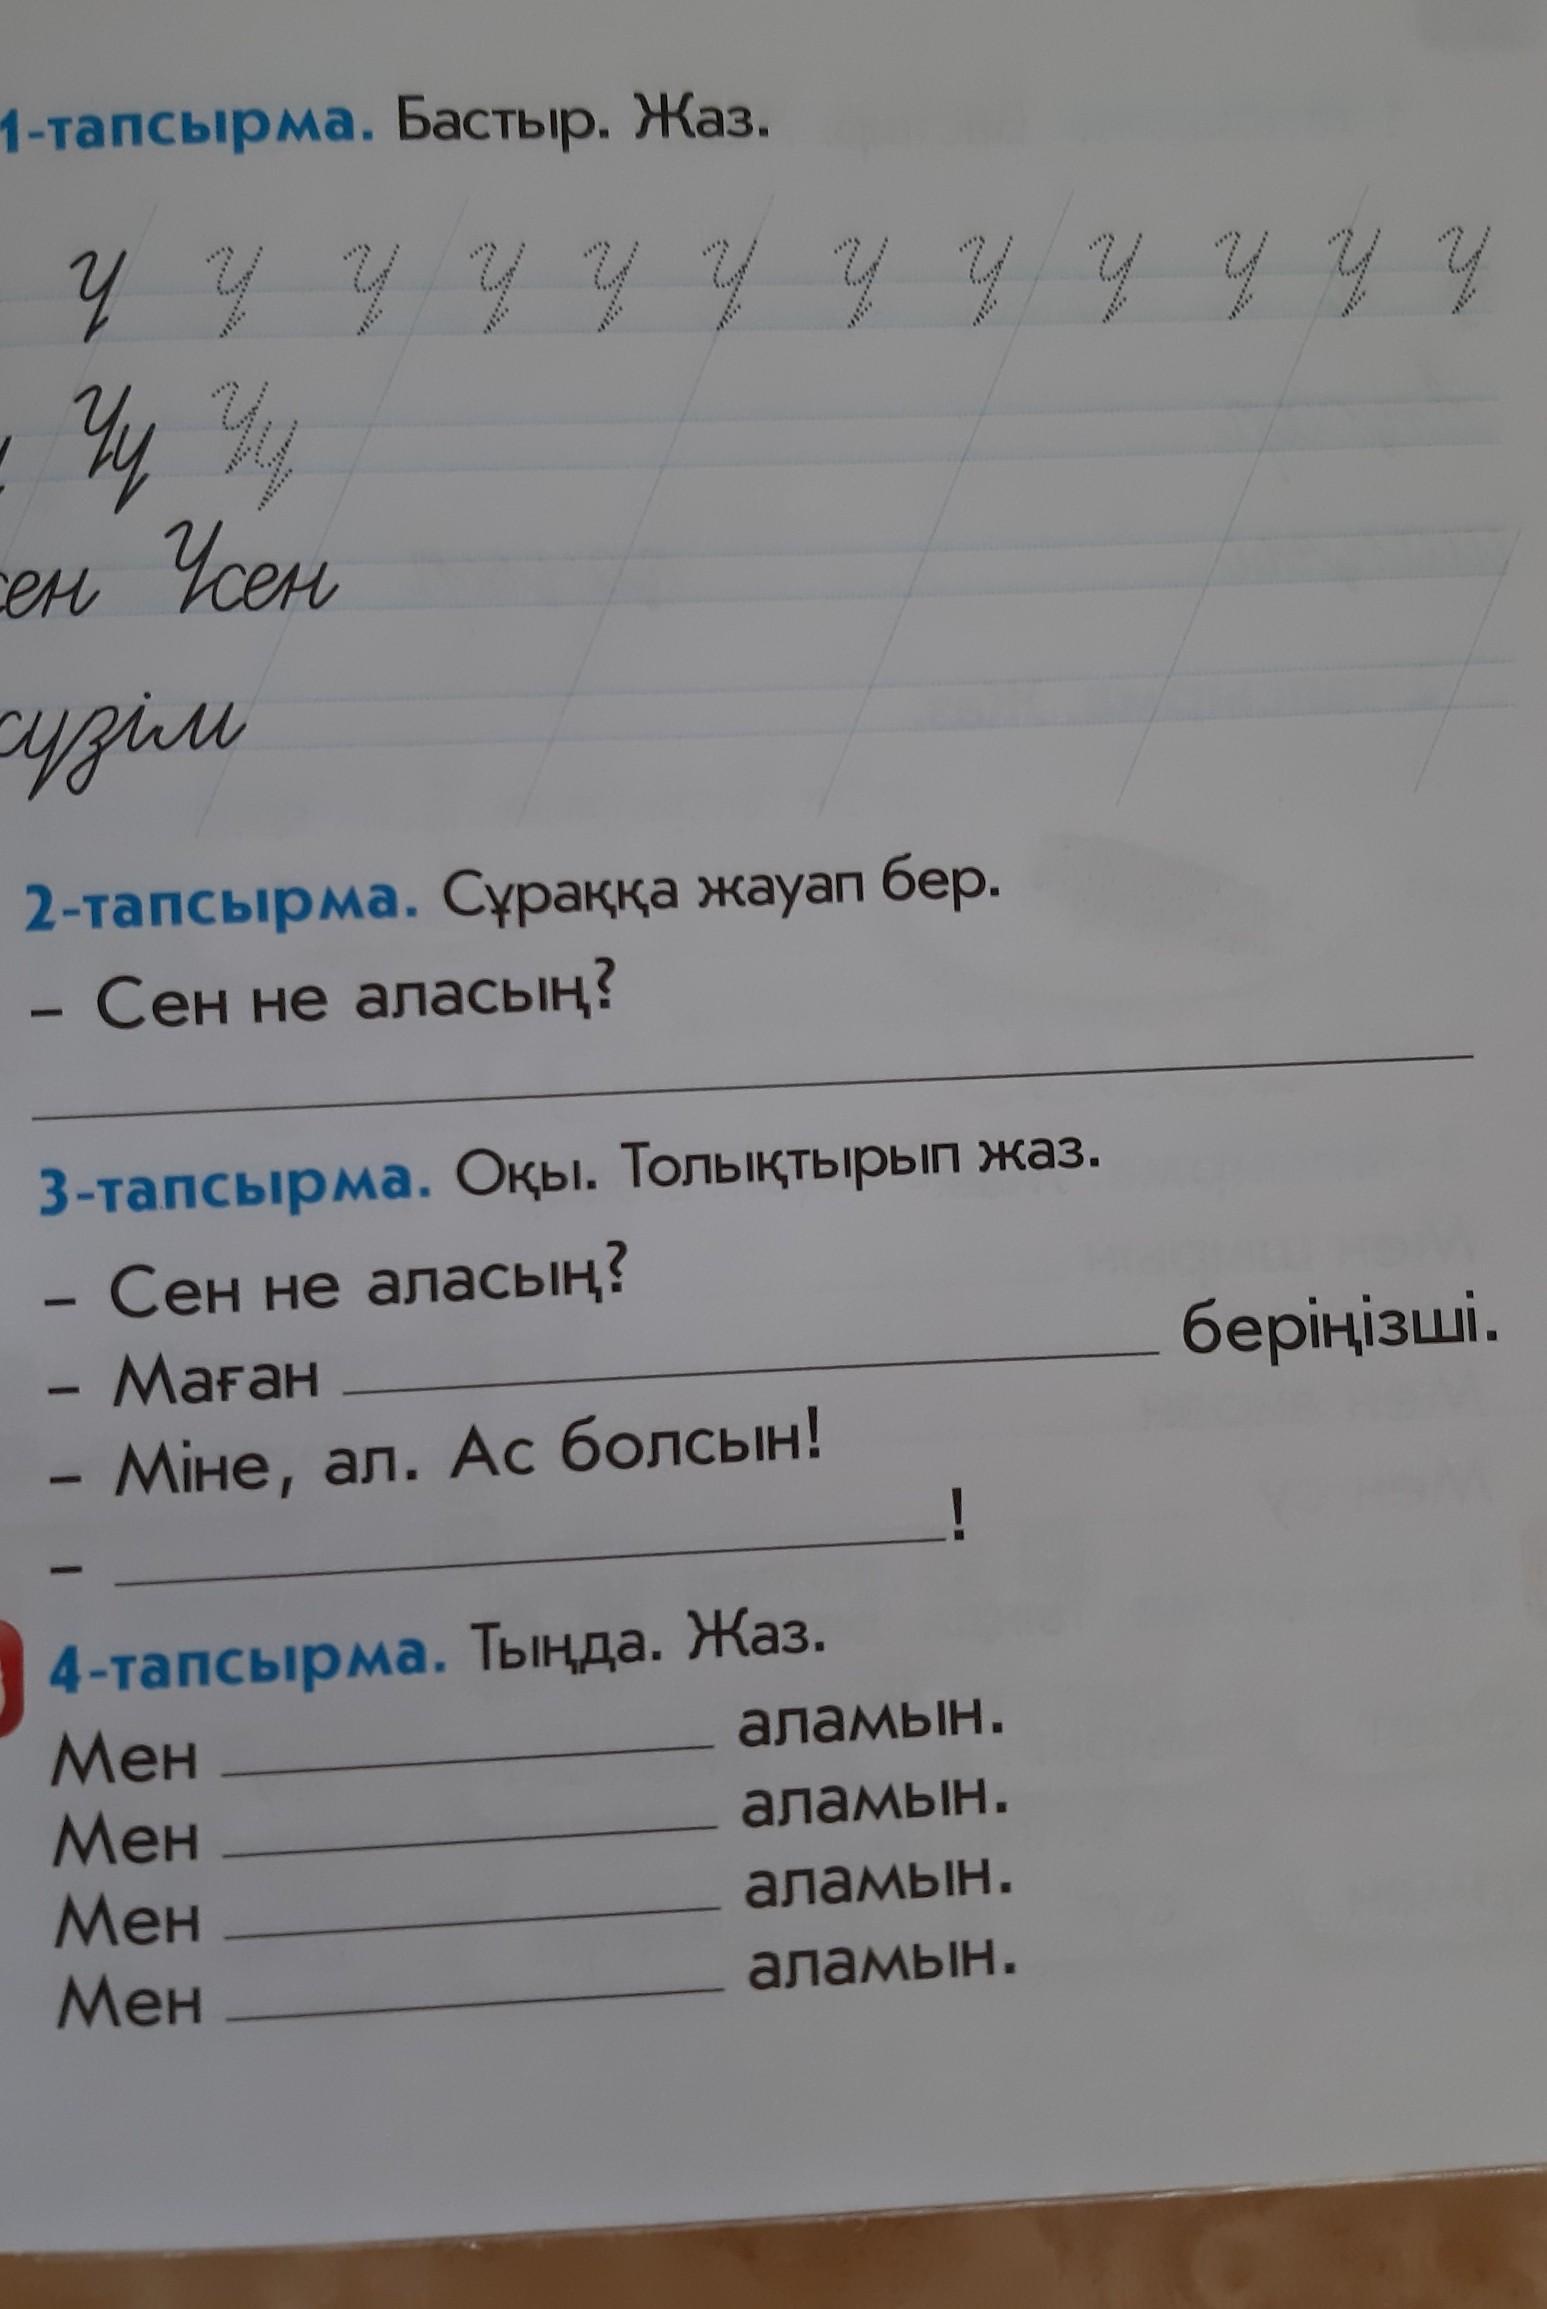 1-тапсырма. Бастыр. Жаз.
Ү Ү Ү Ү Ү Ү Ү Ү Ү Ү Ү Ү
Үү Үү
сен Үсен
сүзім
2-тапсырма. Сұраққа жауап бер.
– Сен не аласың?
3-тапсырма. Оқы. Толықтырып жаз.
– Сен не аласың?
– Маған ____ беріңізші.
– Міне, ал. Ас болсын!
– ____!
4-тапсырма. Тыңда. Жаз.
Мен ____ аламын.
Мен ____ аламын.
Мен ____ аламын.
Мен ____ аламын.